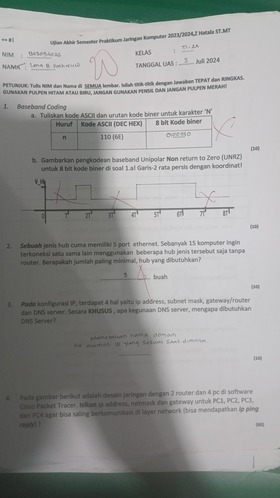 Ujian Akhir Semester Praktikum Jaringan Komputer 2023/2024,Z Hatala ST.MT
NIM :
KELAS : TI-2A
NAMA :
TANGGAL UAS : 5 Juli 2024
PETUNJUK: Tulis NIM dan Nama di SEMUA lembar. Isilah titik-titik dengan Jawaban TEPAT dan RINGKAS.
GUNAKAN PULPEN HITAM ATAU BIRU, JANGAN GUNAKAN PENSIL DAN JANGAN PULPEN MERAH!
1. Baseband Coding
a. Tuliskan kode ASCII dan urutan kode biner untuk karakter 'N'
Huruf Kode ASCII (DEC HEX) 8 bit Kode biner
n 110 (6E)
(10)
b. Gambarkan pengkodean baseband Unipolar Non return to Zero (UNRZ)
untuk 8 bit kode biner di soal 1.a! Garis-2 rata persis dengan koordinat!
0 T 2T 3T 4T 5T 6T 7T 8T
(10)
2. Sebuah jenis hub cuma memiliki 5 port ethernet. Sebanyak 15 komputer ingin
terkoneksi satu sama lain menggunakan beberapa hub jenis tersebut saja tanpa
router. Berapakah jumlah paling minimal, hub yang dibutuhkan?
5 buah
(10)
3. Pada konfigurasi IP, terdapat 4 hal yaitu ip address, subnet mask, gateway/router
dan DNS server. Secara KHUSUS , apa kegunaan DNS server, mengapa dibutuhkan
DNS Server?
Menerjemahkan nama domain
ke alamat ip yang sesuai saat diminta
(10)
4. Pada gambar berikut adalah desain jaringan dengan 2 router dan 4 pc di software
Cisco Packet Tracer. Isikan ip address, netmask dan gateway untuk PC1, PC2, PC3,
dan PC4 agar bisa saling berkomunikasi di layer network (bisa mendapatkan ip ping
reply) !